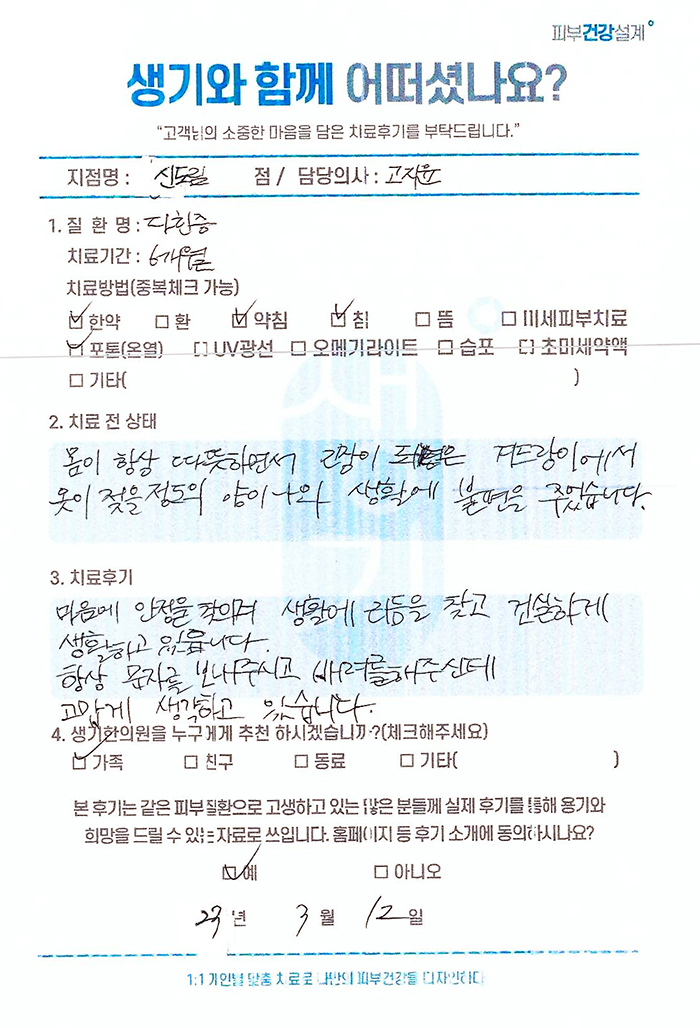 피부건강설계
생기와 함께 어떠셨나요?
“고객님의 소중한 마음을 담은 치료후기를 부탁드립니다.”
지점명 : 신도림 점 / 담당의사 : 고지윤
1. 질 환 명 : 다한증
치료기간 : 6개월
치료방법(중복체크 가능)
☑ 한약 □ 환 ☑ 약침 ☑ 침 □ 뜸 □ 미세피부치료
☑ 포톤(온열) □ UV광선 □ 오메가라이트 □ 습포 □ 초미세약액
□ 기타( )
2. 치료 전 상태
몸이 항상 따뜻하면서 긴장이 되면은 겨드랑이에서
옷이 젖을 정도의 양이 나와 생활에 불편을 주었습니다.
3. 치료후기
마음에 안정을 찾으며 생활에 리듬을 찾고 건실하게
생활하고 있습니다.
항상 문자를 보내주시고 배려를해주신데
고맙게 생각하고 있습니다.
4. 생기한의원을 누구에게 추천 하시겠습니까?(체크해주세요)
☑ 가족 □ 친구 □ 동료 □ 기타( )
본 후기는 같은 피부질환으로 고생하고 있는 많은 분들께 실제 후기를 통해 용기와
희망을 드릴 수 있는 자료로 쓰입니다. 홈페이지 등 후기 소개에 동의하시나요?
☑ 예 □ 아니오
23 년 3 월 12 일
1:1 개인별 맞춤 치료로 나만의 피부건강을 디자인하다